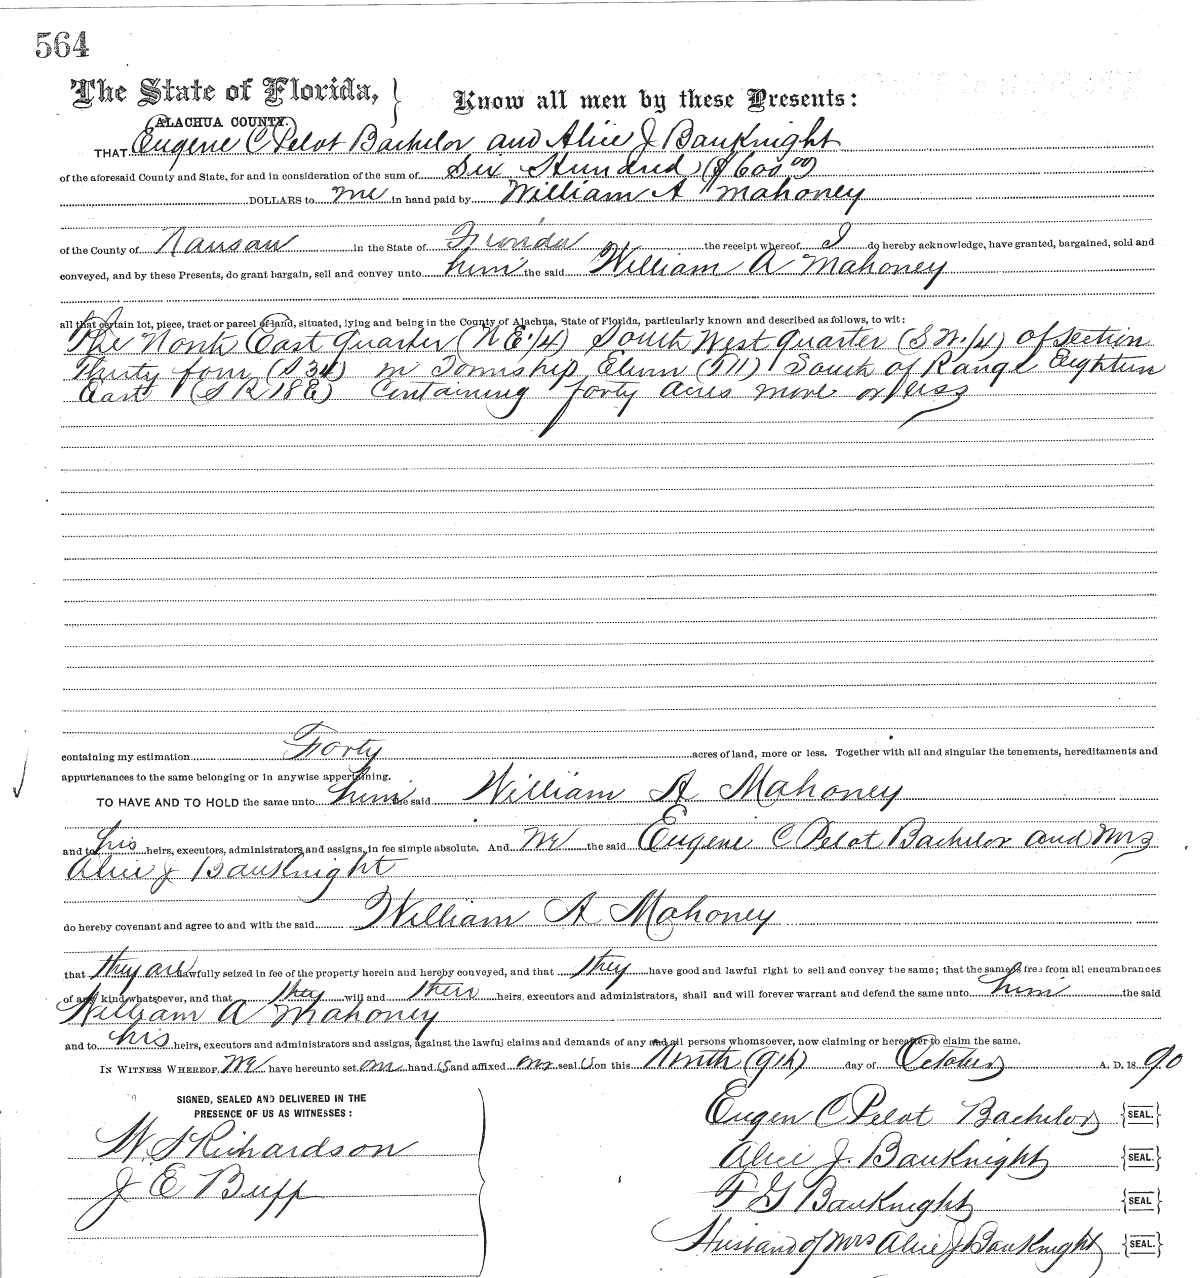 564
The State of Florida, } Know all men by these Presents:
ALACHUA COUNTY.
THAT Eugene C Pelot Bachelor and Alice J BauKnight
of the aforesaid County and State, for and in consideration of the sum of Six Hundred ($600 00)
DOLLARS to me in hand paid by William A Mahoney
of the County of Nassau in the State of Florida the receipt whereof I do hereby acknowledge, have granted, bargained, sold and
conveyed, and by these Presents, do grant bargain, sell and convey unto him the said William A Mahoney
all that certain lot, piece, tract or parcel of land, situated, lying and being in the County of Alachua, State of Florida, particularly known and described as follows, to wit:
The North East Quarter (N E 1/4) South West Quarter (S W 1/4) of Section
Thirty four (S 34) in Township Eleven (T11) South of Range Eighteen
East (S R 18 E) Containing forty acres more or less
containing my estimation Forty acres of land, more or less. Together with all and singular the tenements, hereditaments and
appurtenances to the same belonging or in anywise appertaining.
TO HAVE AND TO HOLD the same unto him the said William A Mahoney
and to his heirs, executors, administrators and assigns, in fee simple absolute. And We the said Eugene C Pelot Bachelor and Mrs
Alice J BauKnight
do hereby covenant and agree to and with the said William A Mahoney
that they are lawfully seized in fee of the property herein and hereby conveyed, and that they have good and lawful right to sell and convey the same; that the same is free from all encumbrances
of any kind whatsoever, and that they will and their heirs, executors and administrators, shall and will forever warrant and defend the same unto him the said
William A Mahoney
and to his heirs, executors and administrators and assigns, against the lawful claims and demands of any and all persons whomsoever, now claiming or hereafter to claim the same.
IN WITNESS WHEREOF, We have hereunto set our hand (s and affixed our seal (s on this Ninth (9th) day of October A. D. 18 90
SIGNED, SEALED AND DELIVERED IN THE
PRESENCE OF US AS WITNESSES:
W. S Richardson
J E Buff
Eugen C Pelot Bachelor {SEAL.}
Alice J. BauKnight {SEAL.}
F G BauKnight {SEAL}
Husband of Mrs Alice J BauKnight {SEAL.}